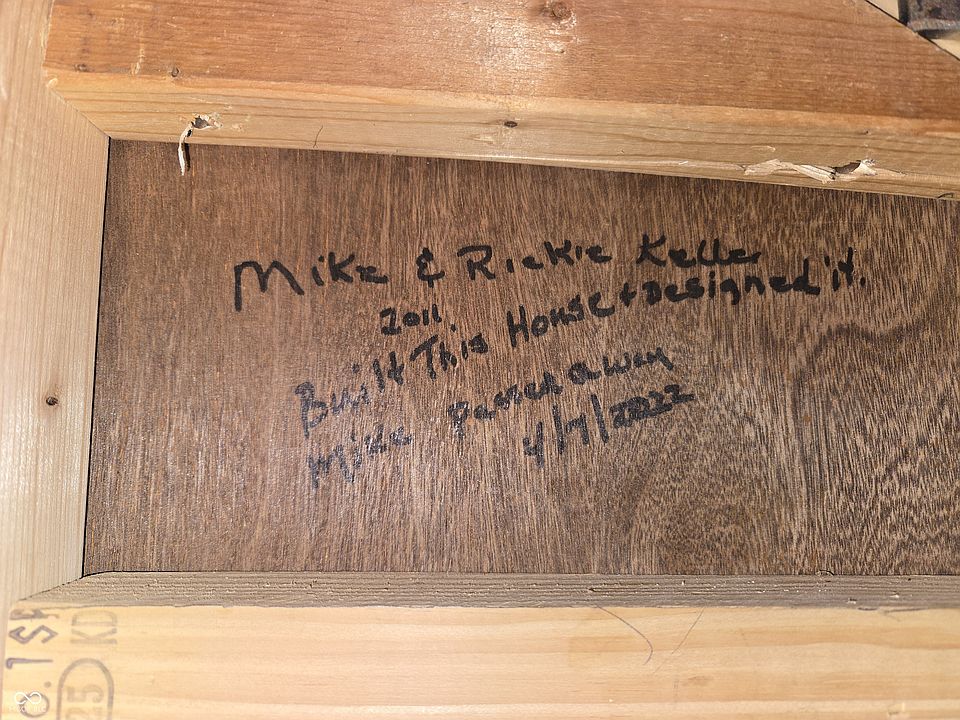 Mike & Rickie Kelle
2011.
Built This House + Designed it.
Mike passed away
4/7/2022
KD
25